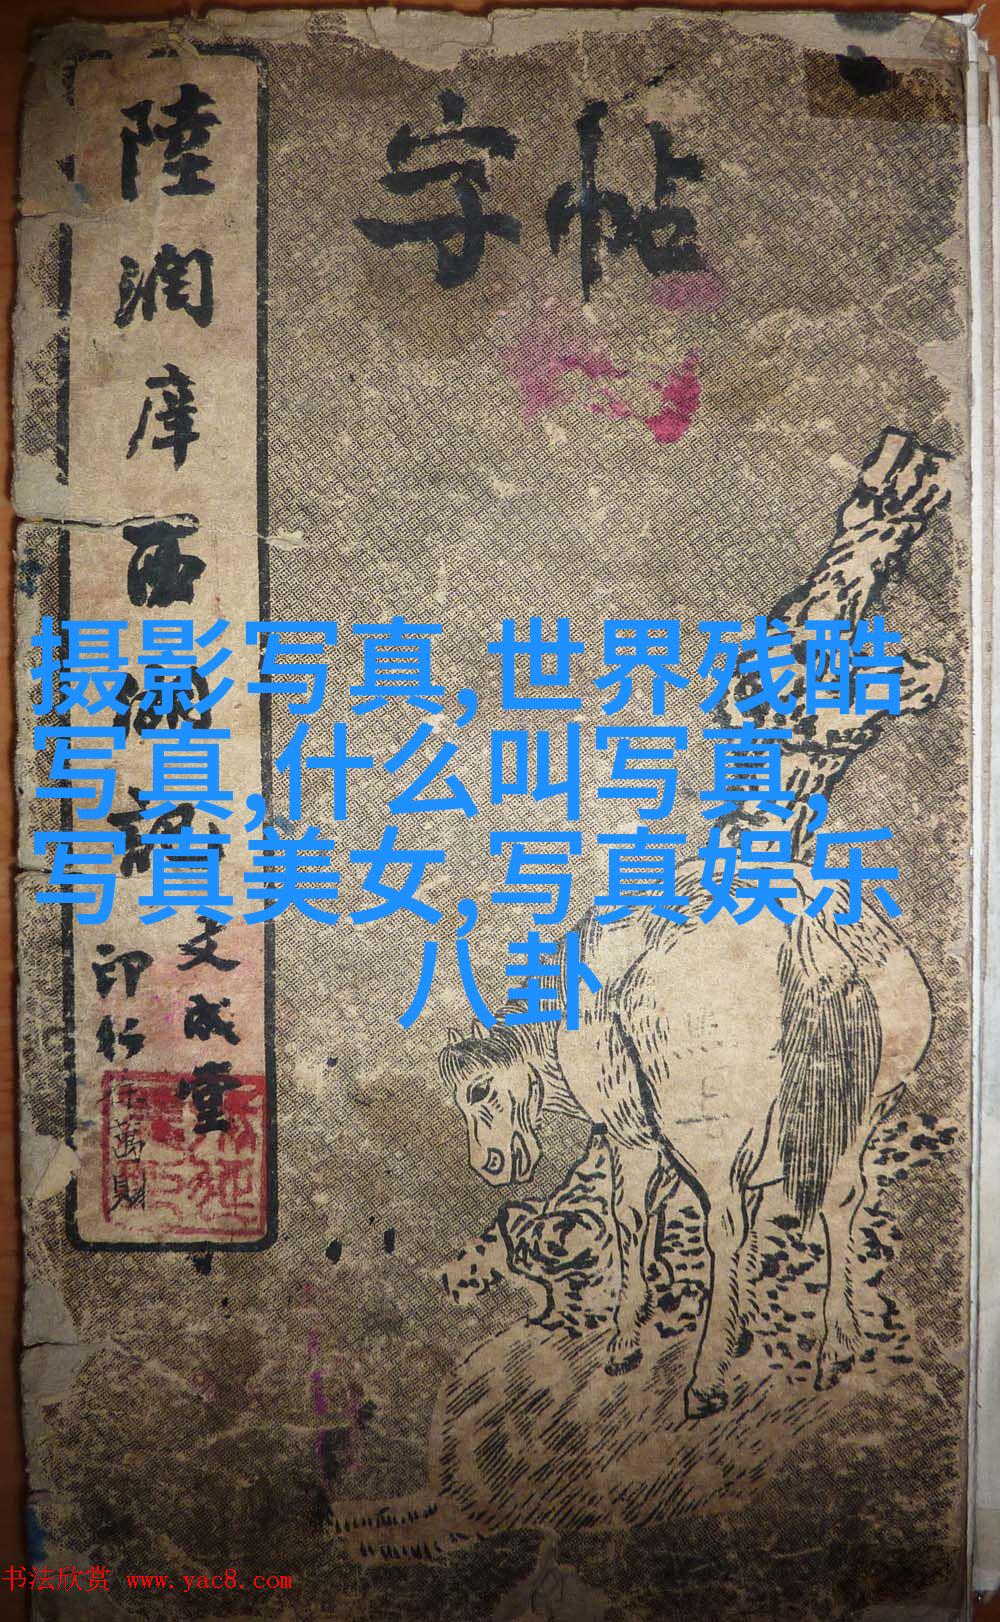 字帖
陸潤庠西湖
文成堂
印行
徐萬財
摄影写真,世界残酷
写真,什么叫写真,
写真美女,写真娱乐
八卦
书法欣赏 www.yac8.com